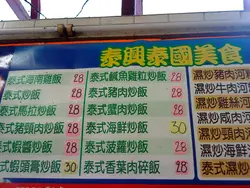 泰興泰國美食
泰式海南雞飯 28
泰式炒飯 28
泰式馬拉炒飯 28
泰式豬頸肉炒飯 28
泰式蝦醬炒飯 28
泰式蝦頭膏炒飯 30
泰式鹹魚雞粒炒飯 28
泰式豬肉炒飯 28
泰式蟹肉炒飯 28
泰式海鮮炒飯 30
泰式菠蘿炒飯 28
泰式香葉肉碎飯 28
濕炒豬肉河
濕炒牛肉河
濕炒雞絲
濕炒咸肉
濕炒頸肉
濕炒海鮮
泰式濕炒